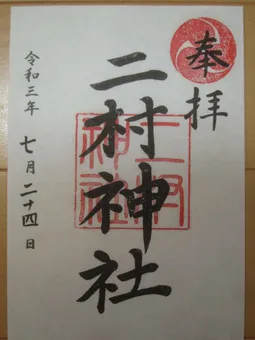 奉拝
二村神社
二村
神社
令和三年 七月二十四日